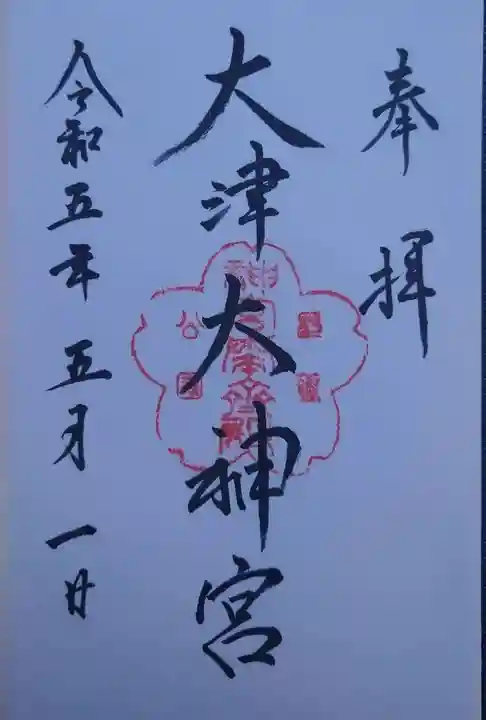 奉拝
大津大神宮
令和五年五月一日